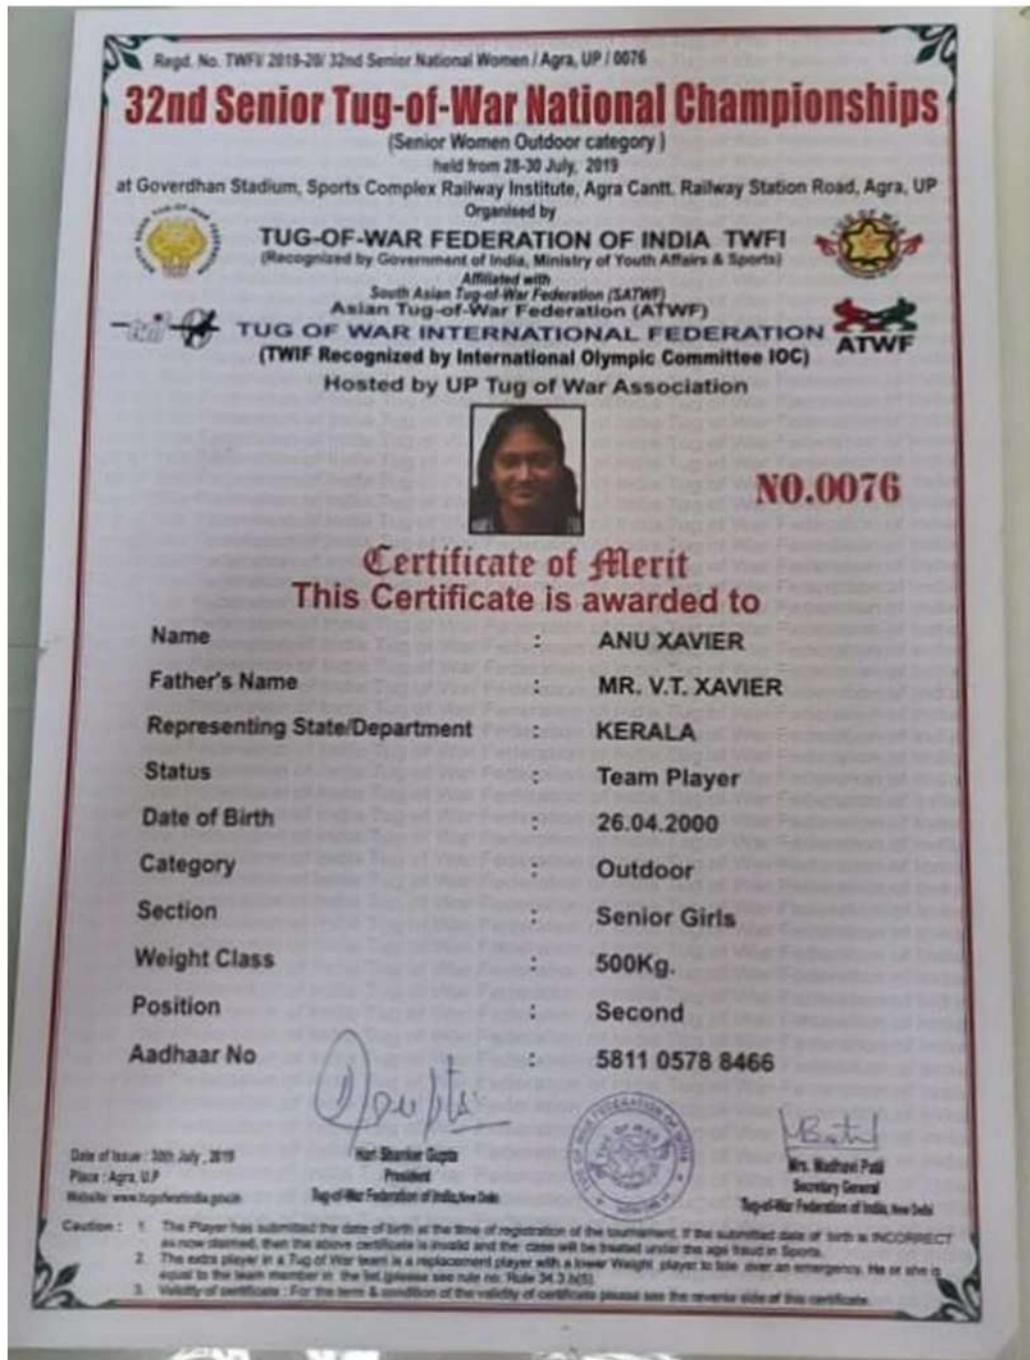 Regd. No. TWFI/ 2019-20/ 32nd Senior National Women / Agra, UP / 0076
32nd Senior Tug-of-War National Championships
(Senior Women Outdoor category )
held from 28-30 July, 2019
at Goverdhan Stadium, Sports Complex Railway Institute, Agra Cantt. Railway Station Road, Agra, UP
Organised by
TUG-OF-WAR FEDERATION OF INDIA TWFI
(Recognized by Government of India, Ministry of Youth Affairs & Sports)
Affiliated with
South Asian Tug-of-War Federation (SATWF)
Asian Tug-of-War Federation (ATWF)
TUG OF WAR INTERNATIONAL FEDERATION
ATWF
(TWIF Recognized by International Olympic Committee IOC)
Hosted by UP Tug of War Association
NO.0076
Certificate of Merit
This Certificate is awarded to
Name : ANU XAVIER
Father's Name : MR. V.T. XAVIER
Representing State/Department : KERALA
Status : Team Player
Date of Birth : 26.04.2000
Category : Outdoor
Section : Senior Girls
Weight Class : 500Kg.
Position : Second
Aadhaar No : 5811 0578 8466
Date of Issue : 30th July , 2019
Place : Agra, U.P
Website: www.tugofwarindia.gov.in
Hari Shanker Gupta
President
Tug-of-War Federation of India, New Delhi
Mrs. Madhavi Patil
Secretary General
Tug-of-War Federation of India, New Delhi
Caution : 1. The Player has submitted the date of birth at the time of registration of the tournament. If the submitted date of birth is INCORRECT
as now claimed, then the above certificate is invalid and the case will be treated under the age fraud in Sports.
2. The extra player in a Tug of War team is a replacement player with a lower Weight player to tide over an emergency. He or she is
equal to the team member in the list (please see rule no. Rule 34.3.b(5)
3. Validity of certificate : For the term & condition of the validity of certificate please see the reverse side of this certificate.